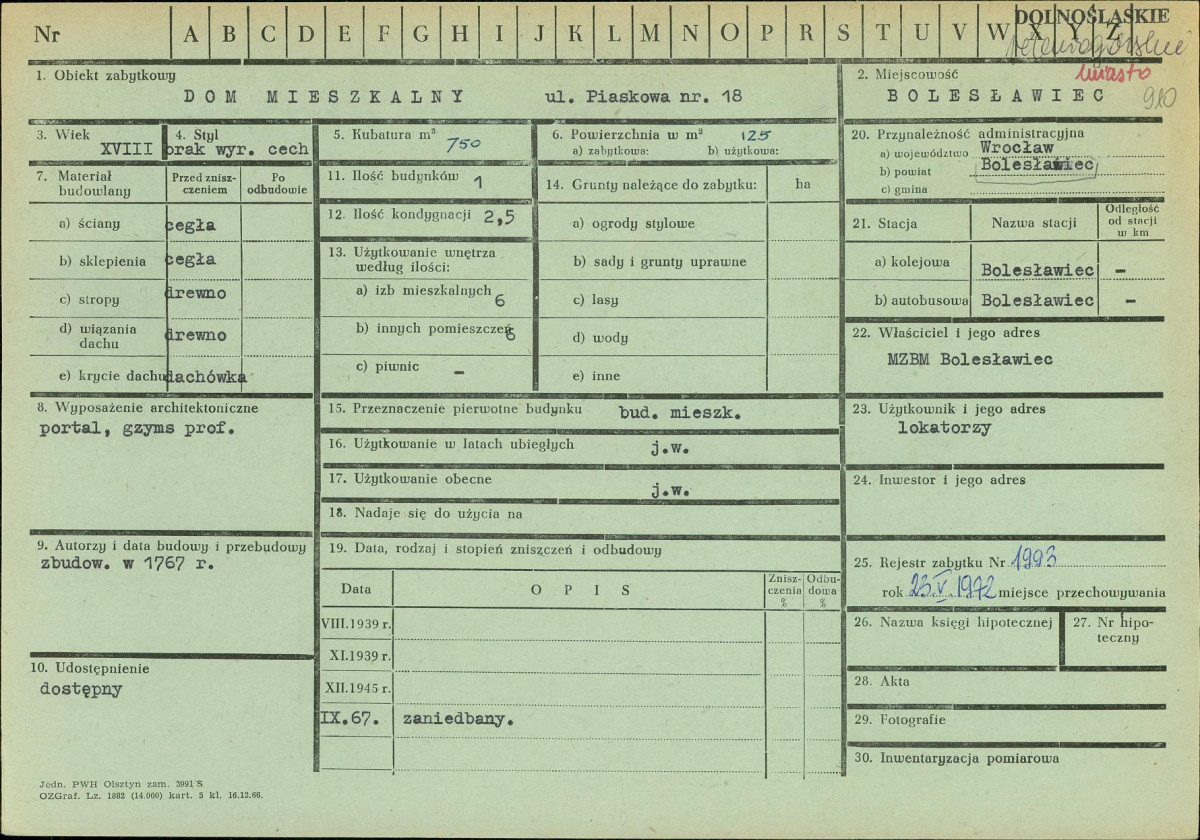 Nr A B C D E F G H I J K L M N O P R S T U V W X Y Z
DOLNOŚLĄSKIE
miasto
910
1. Obiekt zabytkowy
DOM MIESZKALNY ul. Piaskowa nr. 18
2. Miejscowość
BOLESŁAWIEC
3. Wiek
XVIII
4. Styl
brak wyr. cech
5. Kubatura m³
750
6. Powierzchnia w m² 125
a) zabytkowa: b) użytkowa:
7. Materiał budowlany
Przed zniszczeniem
Po odbudowie
a) ściany cegła
b) sklepienia cegła
c) stropy drewno
d) wiązania dachu drewno
e) krycie dachu dachówka
8. Wyposażenie architektoniczne
portal, gzyms prof.
9. Autorzy i data budowy i przebudowy
zbudow. w 1767 r.
10. Udostępnienie
dostępny
11. Ilość budynków 1
12. Ilość kondygnacji 2,5
13. Użytkowanie wnętrza
według ilości:
a) izb mieszkalnych 6
b) innych pomieszczeń 6
c) piwnic –
14. Grunty należące do zabytku: ha
a) ogrody stylowe
b) sady i grunty uprawne
c) lasy
d) wody
e) inne
15. Przeznaczenie pierwotne budynku bud. mieszk.
16. Użytkowanie w latach ubiegłych j.w.
17. Użytkowanie obecne j.w.
18. Nadaje się do użycia na
19. Data, rodzaj i stopień zniszczeń i odbudowy
Data OPIS Zniszczenia % Odbudowa %
VIII.1939 r.
XI.1939 r.
XII.1945 r.
IX.67. zaniedbany.
20. Przynależność administracyjna
a) województwo Wrocław
b) powiat Bolesławiec
c) gmina
21. Stacja Nazwa stacji Odległość od stacji w km
a) kolejowa Bolesławiec –
b) autobusowa Bolesławiec –
22. Właściciel i jego adres
MZBM Bolesławiec
23. Użytkownik i jego adres
lokatorzy
24. Inwestor i jego adres
25. Rejestr zabytku Nr 1993
rok 23.V.1972 miejsce przechowywania
26. Nazwa księgi hipotecznej
27. Nr hipoteczny
28. Akta
29. Fotografie
30. Inwentaryzacja pomiarowa
Jedn. PWH Olsztyn zam. 3991 S
OZGraf. Lz. 1882 (14.000) kart. 5 kl. 16.12.66.